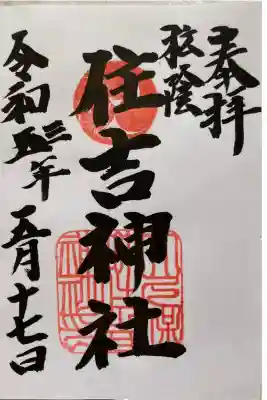 奉拝
住吉神社
令和五三年五月十七日